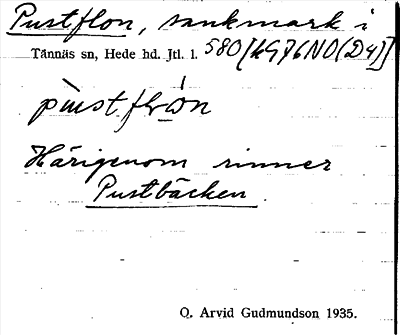 Pustflon, sankmark i
Tännäs sn, Hede hd. Jtl. l. 580 [kG76NO(D4)]
Härigenom rinner
Pustbäcken.
O. Arvid Gudmundson 1935.